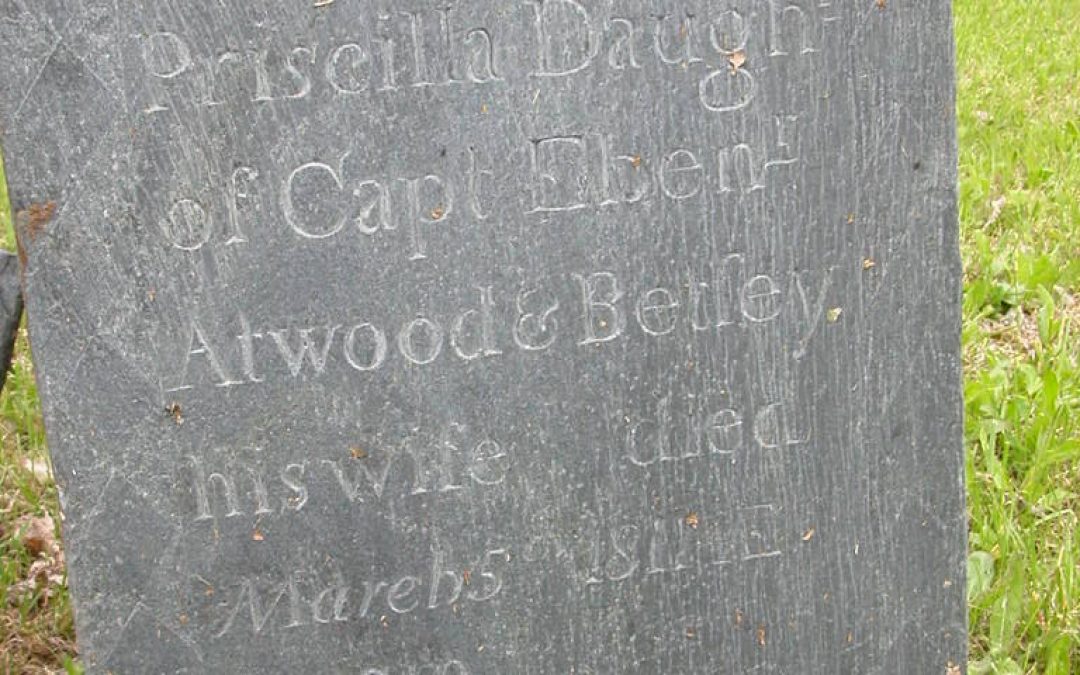 Priscilla Daugh=
of Capt Eben r
Atwood & Betſey
his wife died
March 5